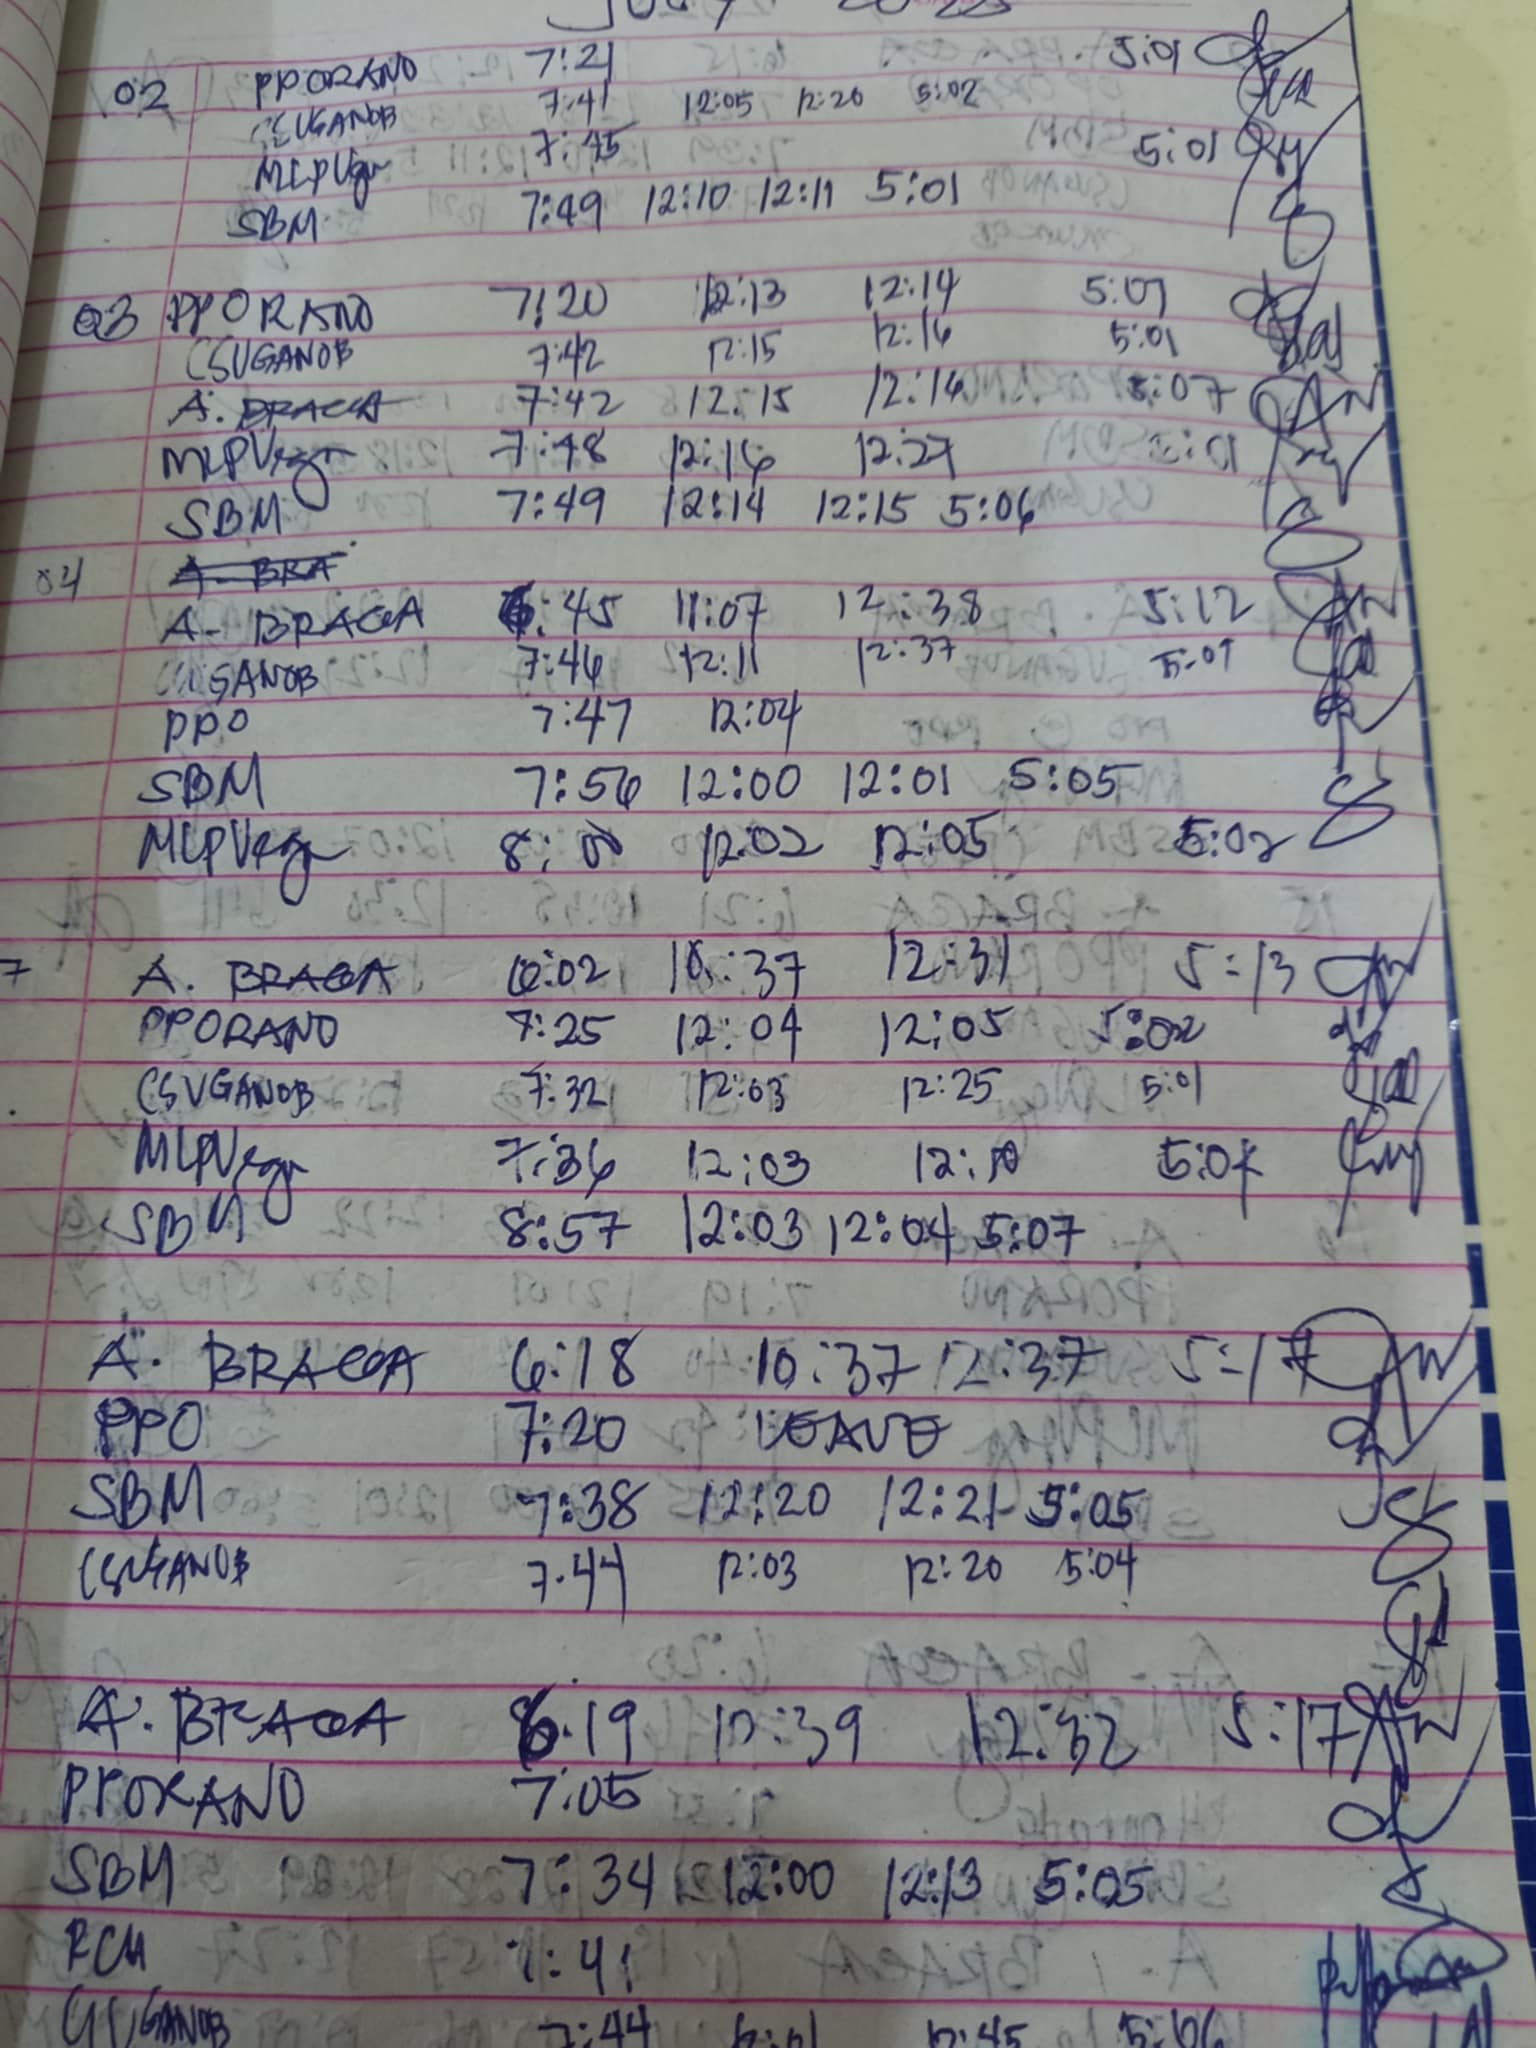 July 2025
02 PPORANO 7:21 5:01
CSUGANOB 7:41 12:05 12:20 5:02
MLPVega 7:45 5:01
SBM 7:49 12:10 12:11 5:01
03 PPORANO 7:20 12:13 12:14 5:01
CSUGANOB 7:42 12:15 12:16 5:01
A. BRAGA 7:42 12:15 12:16 5:07
MLPVega 7:48 12:16 12:27 5:01
SBM 7:49 12:14 12:15 5:06
04 A. BRA
A. BRAGA 6:45 11:07 12:38 5:12
CSUGANOB 7:46 12:11 12:37 5:01
PPO 7:47 12:04
SBM 7:56 12:00 12:01 5:05
MLPVega 8:00 12:02 12:05 5:02
7 A. BRAGA 6:02 10:37 12:31 5:13
PPORANO 7:25 12:04 12:05 5:02
CSUGANOB 7:32 12:03 12:25 5:01
MLPVega 7:36 12:03 12:10 5:04
SBM 8:57 12:03 12:04 5:07
A. BRAGA 6:18 10:37 12:37 5:17
PPO 7:20 LEAVE
SBM 7:38 12:20 12:21 5:05
CSUGANOB 7:44 12:03 12:20 5:04
A. BRAGA 6:19 10:39 12:32 5:17
PPORANO 7:05
SBM 7:34 12:00 12:13 5:05
RCM 7:41
CSUGANOB 7:44 12:01 12:45 5:06